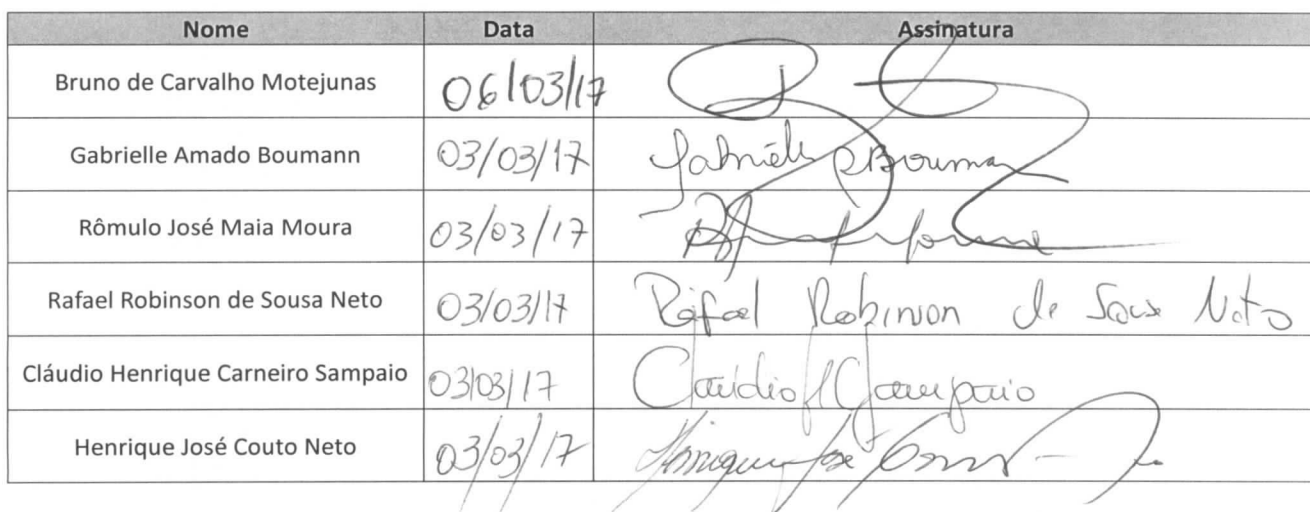 Nome Data Assinatura
Bruno de Carvalho Motejunas 06/03/17
Gabrielle Amado Boumann 03/03/17 Gabrielle Bouman
Rômulo José Maia Moura 03/03/17
Rafael Robinson de Sousa Neto 03/03/17 Rafael Robinson de Sousa Neto
Cláudio Henrique Carneiro Sampaio 03/03/17 Claudio H C Sampaio
Henrique José Couto Neto 03/03/17 Henrique José